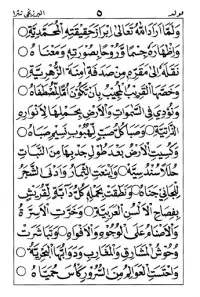 ٥
وَلَمَّا أَرَادَ اللهُ تَعَالَى إِبْرَازَ حَقِيقَتِهِ الْمُحَمَّدِيَّةِ ۞
وَإِظْهَارَهُ جِسْمًا وَرُوحًا بِصُورَتِهِ وَمَعْنَاهُ ۞
نَقَلَهُ إِلَى مَقَرِّهِ مِنْ صَدَفَةِ آمِنَةَ الزُّهْرِيَّةِ ۞
وَخَصَّهَا الْقَرِيبُ الْمُجِيبُ بِأَنْ تَكُونَ أُمًّا لِمُصْطَفَاهُ ۞
وَنُودِيَ فِي السَّمٰوَاتِ وَالْأَرْضِ بِحَمْلِهَا لِأَنْوَارِهِ
الذَّاتِيَّةِ ۞ وَصَبَا كُلُّ صَبٍّ لِهُبُوبِ نَسِيمِ صَبَاهُ ۞
وَكُسِيَتِ الْأَرْضُ بَعْدَ طُولِ جَدْبِهَا مِنَ النَّبَاتِ
حُلَلًا سُنْدُسِيَّةً ۞ وَأَيْنَعَتِ الثِّمَارُ وَأَدْنَى الشَّجَرُ
لِلْجَانِي جَنَاهُ ۞ وَنَطَقَتْ بِحَمْلِهِ كُلُّ دَابَّةٍ لِقُرَيْشٍ
بِفِصَاحِ الْأَلْسُنِ الْعَرَبِيَّةِ ۞ وَخَرَّتِ الْأَسِرَّةُ
وَالْأَصْنَامُ عَلَى الْوُجُوهِ وَالْأَفْوَاهِ ۞ وَتَبَاشَرَتْ
وُحُوشُ الْمَشَارِقِ وَالْمَغَارِبِ وَدَوَابُّهَا الْبَحْرِيَّةُ ۞
وَاحْتَسَتِ الْعَوَالِمُ مِنَ السُّرُورِ كَأْسَ حُمَيَّاهُ ۞